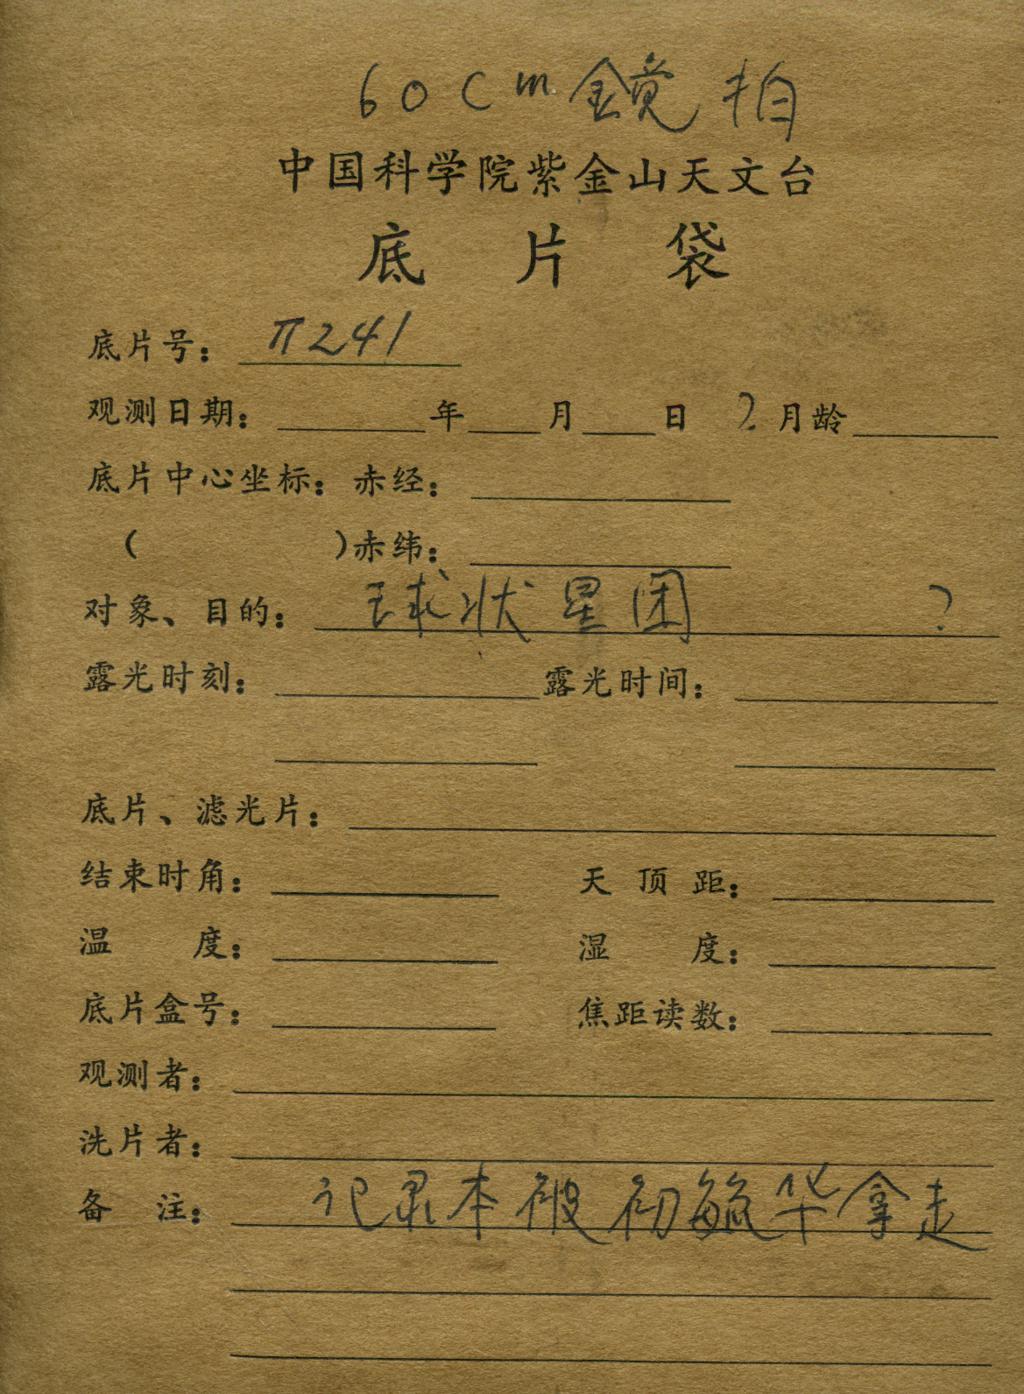 60cm 鏡拍
中国科学院紫金山天文台
底 片 袋
底片号：π241
观测日期： 年 月 日 ? 月龄
底片中心坐标：赤经：
( )赤纬：
对象、目的：球状星团 ?
露光时刻： 露光时间：
底片、滤光片：
结束时角： 天 顶 距：
温 度： 湿 度：
底片盒号： 焦距读数：
观测者：
洗片者：
备 注：记录本被初毓华拿走